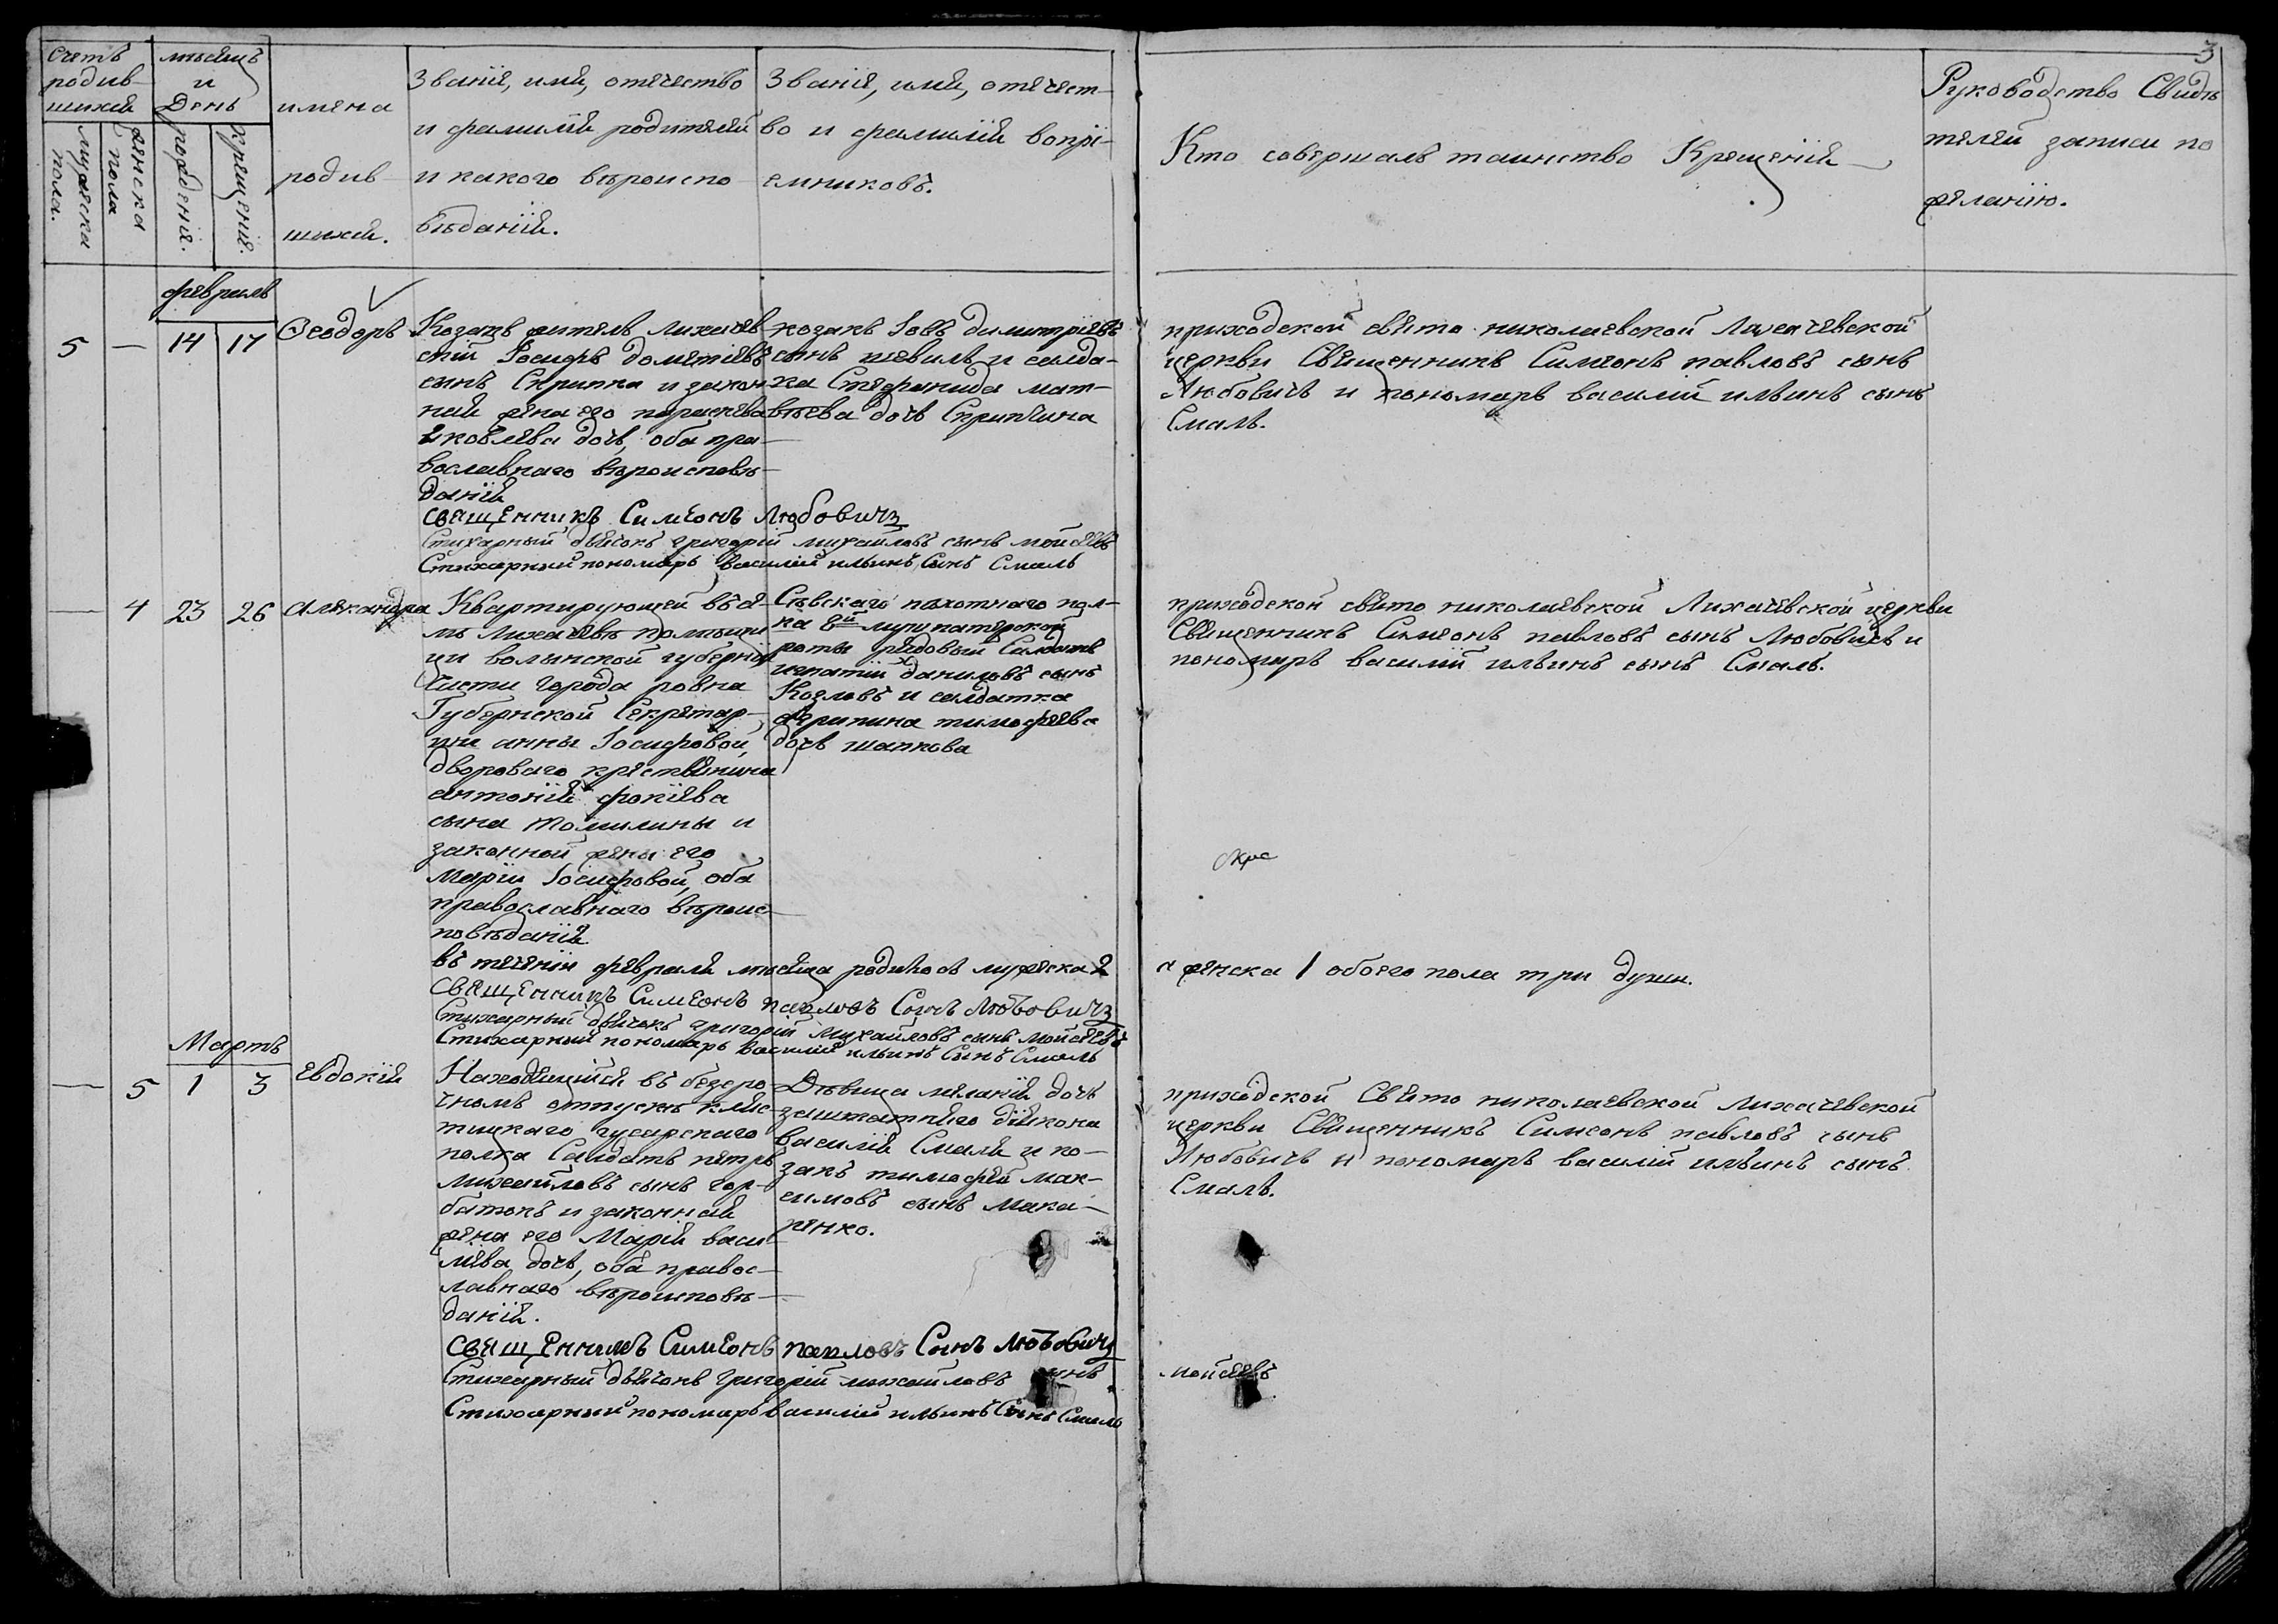 3
Счетъ
родив
шихся
мѣсяцъ
и
День
мужеска
пола.
женска
пола
рожденія.
крещенія.
имена
родив
шихся.
Званіе, имя, отечество
и фамилія родителей
и какого вѣроиспо
вѣданія.
Званіе, имя, отечест–
во и фамилія вопрі–
емниковъ.
Кто совершалъ таинство Крещенія
Руководство Свидѣ
телей записи по
желанію.
февраль
5 — 14 17
Ѳеодоръ
Козакъ житель лихачев
скій Іосифъ дометіевъ
сынъ Скрипка и закон
ная жена его параскева
яковлева дочь, оба пра–
вославнаго вѣроисповѣ–
данія
козакъ Іовъ димитріевъ
сынъ шевиль и солда–
тка Стефанида мат–
вѣева дочь Скрипчина
приходской свято николаевской Лихачевской
церкви Священникъ Симеонъ павловъ сынъ
Любовичъ и пономаръ василій ильинъ сынъ
Смаль.
священникъ Симеонъ Любовичъ
Стихарный дьячокъ григорій михайловъ сынъ мойсеевъ
Стихарный пономаръ василій ильинъ Сынъ Смаль
— 4 23 26
Александра
Квартирующей въ се–
лѣ Лихачевѣ помѣщи
ци волынской губерніи
части города ровна
Губернской Секретар–
ши анны Іосифовой,
двороваго крестьянина
антонія фокіева
сына томилины и
законной жены его
Маріи Іосифовой, оба
православнаго вѣроис–
повѣданія
Сѣвскаго пѣхотнаго пол–
ка 8й мушкатерской
роты рядовый Салдатъ
игнатій даниловъ сынъ
Козловъ и салдатка
тимофеева
дочь шапкова
приходской свято николаевской Лихачевской церкви
Священникъ Симеонъ павловъ сынъ Любовичъ и
пономаръ василій ильинъ сынъ Смаль.
въ теченіи февраля мѣсяца родилось мужеска 2
и женска 1 обоего пола три души.
священникъ Симеонъ павловъ Сынъ Любовичъ
Стихарный дьячокъ григорій Михайловъ сынъ мойсеевъ
Стихарный пономаръ василій ильинъ Сынъ Смаль
Мартъ
— 5 1 3
Евдокія
Находящійся въ безсро–
чномъ отпуску кляс–
тицкаго гусарскаго
полка Салдатъ петръ
михайловъ сынъ гор–
батокъ и законная
жена его Марія васи–
лева дочь, оба правос–
лавнаго вѣроисповѣ–
данія.
Дѣвица меланія дочь
заштатнаго діякона
василія Смаля и ко–
закъ тимофей мак–
симовъ сынъ мака–
ренко.
приходской Свято николаевской лихачевской
церкви Священникъ Симеонъ павловъ сынъ
Любовичъ и пономаръ василій ильинъ сынъ
Смаль.
священникъ Симеонъ павловъ Сынъ Любовичъ
Стихарный дьячокъ григорій михайловъ сынъ мойсеевъ
Стихарный пономаръ василій ильинъ Сынъ Смаль